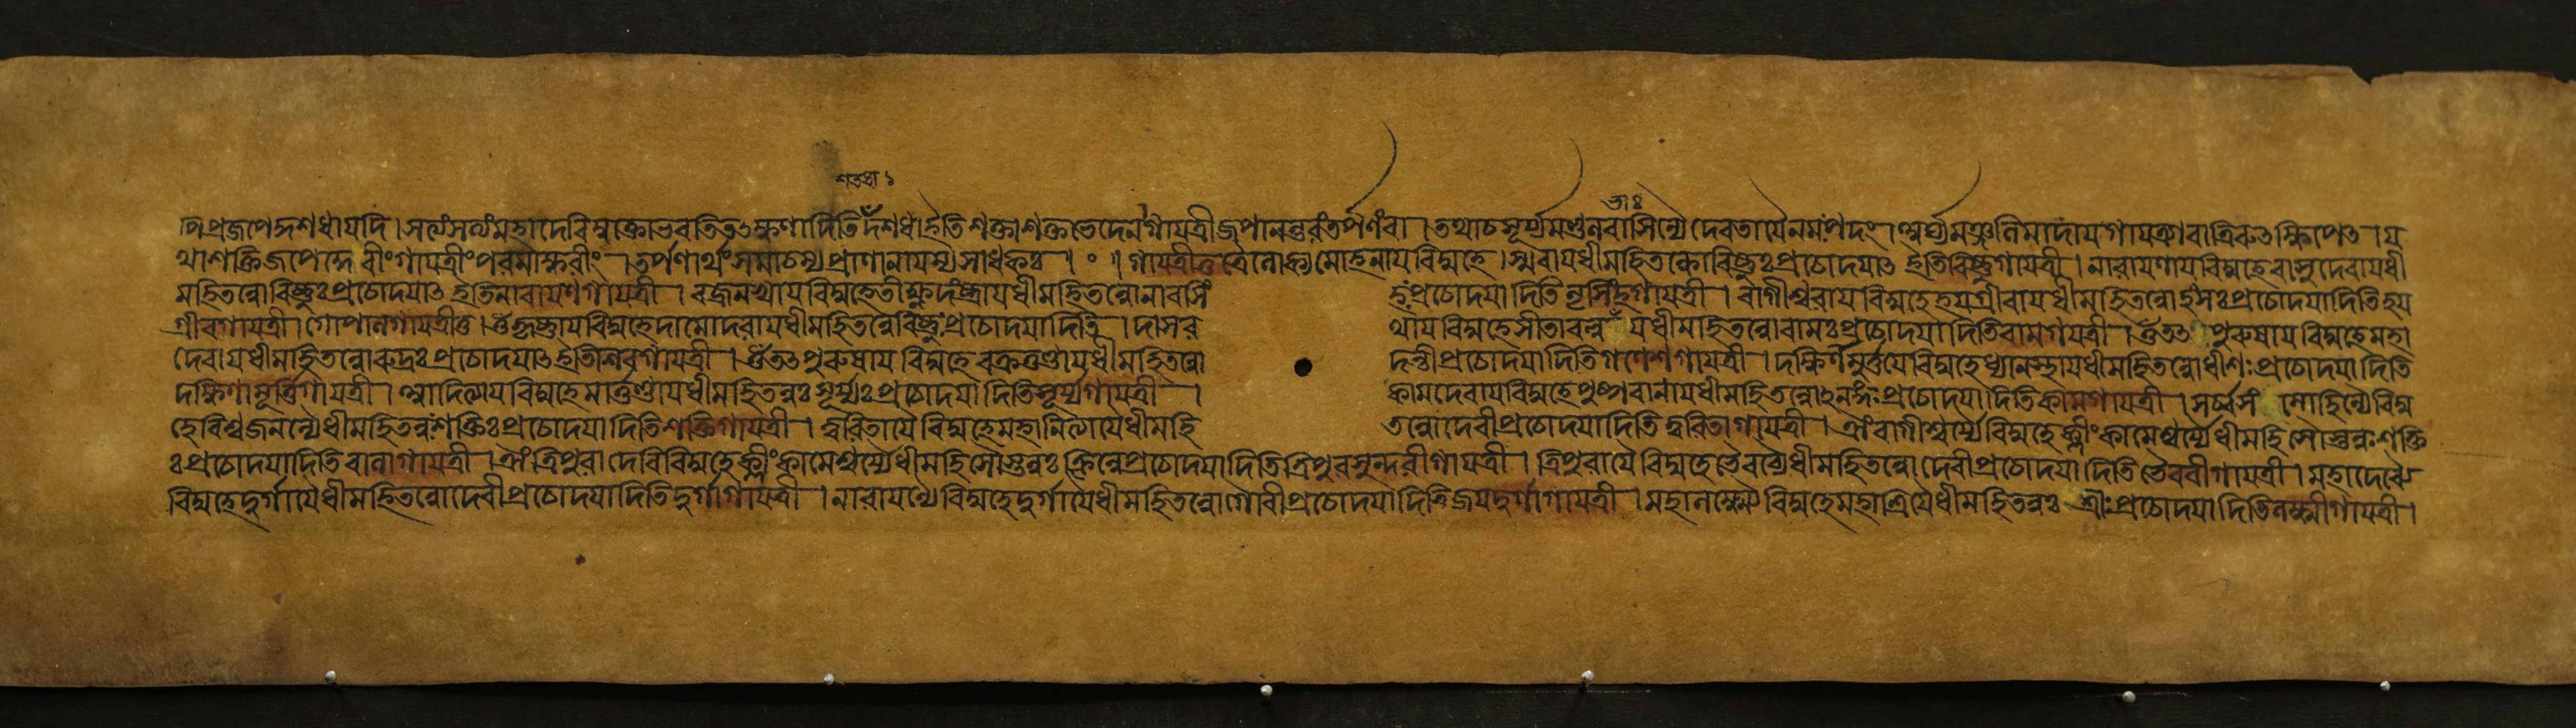 শতধা ১
পিপ্ৰজপেদ্দশধাযদি। সত্যংসত্যংমহাদেবিমুক্তোভবতিতত্ক্ষণাদিতিদশধাইতিশক্তাশক্তভেদেনগাযত্ৰীজপানন্তৰংতৰ্পণংবা। তথাচসূৰ্য্যমণ্ডলবাসিন্যৈদেবতাযৈনমঃপদং। অৰ্ঘ্যমঞ্জলিমাদাযগাযত্ৰ্যাবাত্ৰিৰুত্ক্ষিপেত্। য
থাশক্তিজপেদ্দেবীংগাযত্ৰীংপৰমাক্ষৰীং। তৰ্পণাৰ্থংসমাচম্যপ্ৰাণানাযম্যসাধকঃ। ঃ॥ গাযত্ৰীতত্ৰৈলোক্যমোহনাযবিদ্মহে। স্মৰাযধীমহিতন্নোবিষ্ণুঃপ্ৰচোদযাত্ইতিবিষ্ণুগাযত্ৰী। নাৰাযণাযবিদ্মহেবাসুদেবাযধী
মহিতন্নোবিষ্ণুঃপ্ৰচোদযাত্ইতিনাৰাযণগাযত্ৰী। বজ্ৰনখাযবিদ্মহেতীক্ষ্ণদংষ্ট্ৰাযধীমহিতন্নোনাৰসিং হঃপ্ৰচোদযাদিতিনৃসিংহগাযত্ৰী। বাগীশ্বৰাযবিদ্মহেহযগ্ৰীবাযধীমহিতন্নোহংসঃপ্ৰচোদযাদিতিহয
গ্ৰীবগাযত্ৰী। গোপালগাযত্ৰীতু। ওঁকৃষ্ণাযবিদ্মহেদামোদৰাযধীমহিতন্নোবিষ্ণুঃপ্ৰচোদযাদিতি। দাসৰ থাযবিদ্মহেসীতাবল্লভাযধীমহিতন্নোৰামঃপ্ৰচোদযাদিতিৰামগাযত্ৰী। ওঁতত্পুৰুষাযবিদ্মহেমহা
দেবাযধীমহিতন্নোৰুদ্ৰঃপ্ৰচোদযাত্ইতিশিবগাযত্ৰী। ওঁতত্পুৰুষাযবিদ্মহেবক্ৰতুণ্ডাযধীমহিতন্নো দন্তীপ্ৰচোদযাদিতিগণেশগাযত্ৰী। দক্ষিণামূৰ্ত্তযেবিদ্মহেধ্যানস্থাযধীমহিতন্নোধীশঃপ্ৰচোদযাদিতি
দক্ষিণামূৰ্ত্তিগাযত্ৰী। আদিত্যাযবিদ্মহেমাৰ্ত্তণ্ডাযধীমহিতন্নঃসূৰ্য্যঃপ্ৰচোদযাদিতিসূৰ্য্যগাযত্ৰী। কামদেবাযবিদ্মহেপুষ্পবানাযধীমহিতন্নোঽনঙ্গঃপ্ৰচোদযাদিতিকামগাযত্ৰী। সৰ্ব্বসংমোহিন্যৈবিদ্ম
হেবিশ্বজনন্যৈধীমহিতন্নঃশক্তিঃপ্ৰচোদযাদিতিশক্তিগাযত্ৰী। ত্বৰিতাযৈবিদ্মহেমহানিত্যাযৈধীমহি তন্নোদেবীপ্ৰচোদযাদিতিত্বৰিতাগাযত্ৰী। ঐংবাগীশ্বৰ্য্যৈবিদ্মহেক্লীংকামেশ্বৰ্য্যৈধীমহিসৌস্তন্নঃশক্তি
ঃপ্ৰচোদযাদিতিবালাগাযত্ৰী। ঐংত্ৰিপুৰাদেবিবিদ্মহেক্লীংকামেশ্বৰ্য্যৈধীমহিসৌস্তন্নঃক্লিন্নেপ্ৰচোদযাদিতিত্ৰিপুৰসুন্দৰীগাযত্ৰী। ত্ৰিপুৰাযৈবিদ্মহেভৈৰব্যৈধীমহিতন্নোদেবীপ্ৰচোদযাদিতিভৈৰবীগাযত্ৰী। মহাদেব্যৈ
বিদ্মহেদুৰ্গাযৈধীমহিতন্নোদেবীপ্ৰচোদযাদিতিদুৰ্গাগাযত্ৰী। নাৰাযণ্যৈবিদ্মহেদুৰ্গাযৈধীমহিতন্নোগৌৰীপ্ৰচোদযাদিতিজযদুৰ্গাগাযত্ৰী। মহালক্ষ্ম্যৈবিদ্মহেমহাশ্ৰিযৈধীমহিতন্নঃশ্ৰীঃপ্ৰচোদযাদিতিলক্ষ্মীগাযত্ৰী।